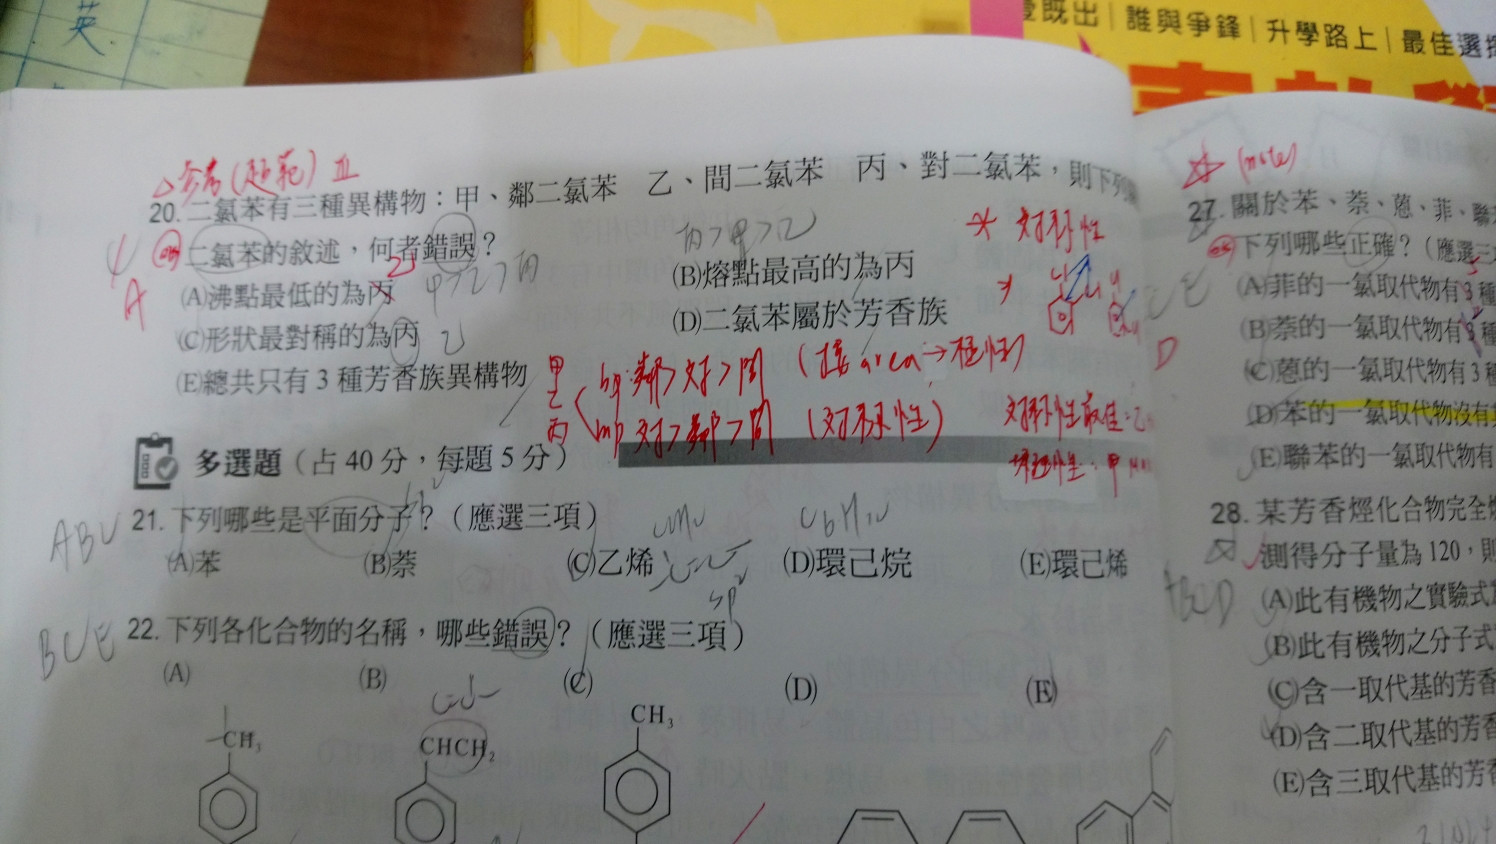 英
愛既出｜誰與爭鋒｜升學路上｜最佳選
△參考(題範) II
20.二氯苯有三種異構物：甲、鄰二氯苯　乙、間二氯苯　丙、對二氯苯，則下列
二氯苯的敘述，何者錯誤？
丙>甲>乙
A
(A)沸點最低的為丙
乙
(B)熔點最高的為丙
(C)形狀最對稱的為丙
乙
(D)二氯苯屬於芳香族
(E)總共只有 3 種芳香族異構物
對稱性
甲
乙
丙
bp:鄰>對>間
mp 對>鄰>間 (對稱性)
多選題（占 40 分，每題 5 分）
ABC
21.下列哪些是平面分子？（應選三項）
(A)苯 (B)萘 (C)乙烯 (D)環己烷 (E)環己烯
sp²
BCE
22.下列各化合物的名稱，哪些錯誤？（應選三項）
(A) (B) (C) (D) (E)
CH₃ CHCH₂ CH₃
(note)
27.關於苯、萘、蒽、菲、聯
下列哪些正確？（應選三
CE
(A)菲的一氯取代物有 3 種
5
(B)萘的一氯取代物有 3 種
D
(C)蒽的一氯取代物有 3 種
(D)苯的一氯取代物沒有
(E)聯苯的一氯取代物有
28.某芳香烴化合物完全燃
測得分子量為 120，則
(A)此有機物之實驗式
(B)此有機物之分子式
(C)含一取代基的芳香
(D)含二取代基的芳香
(E)含三取代基的芳香